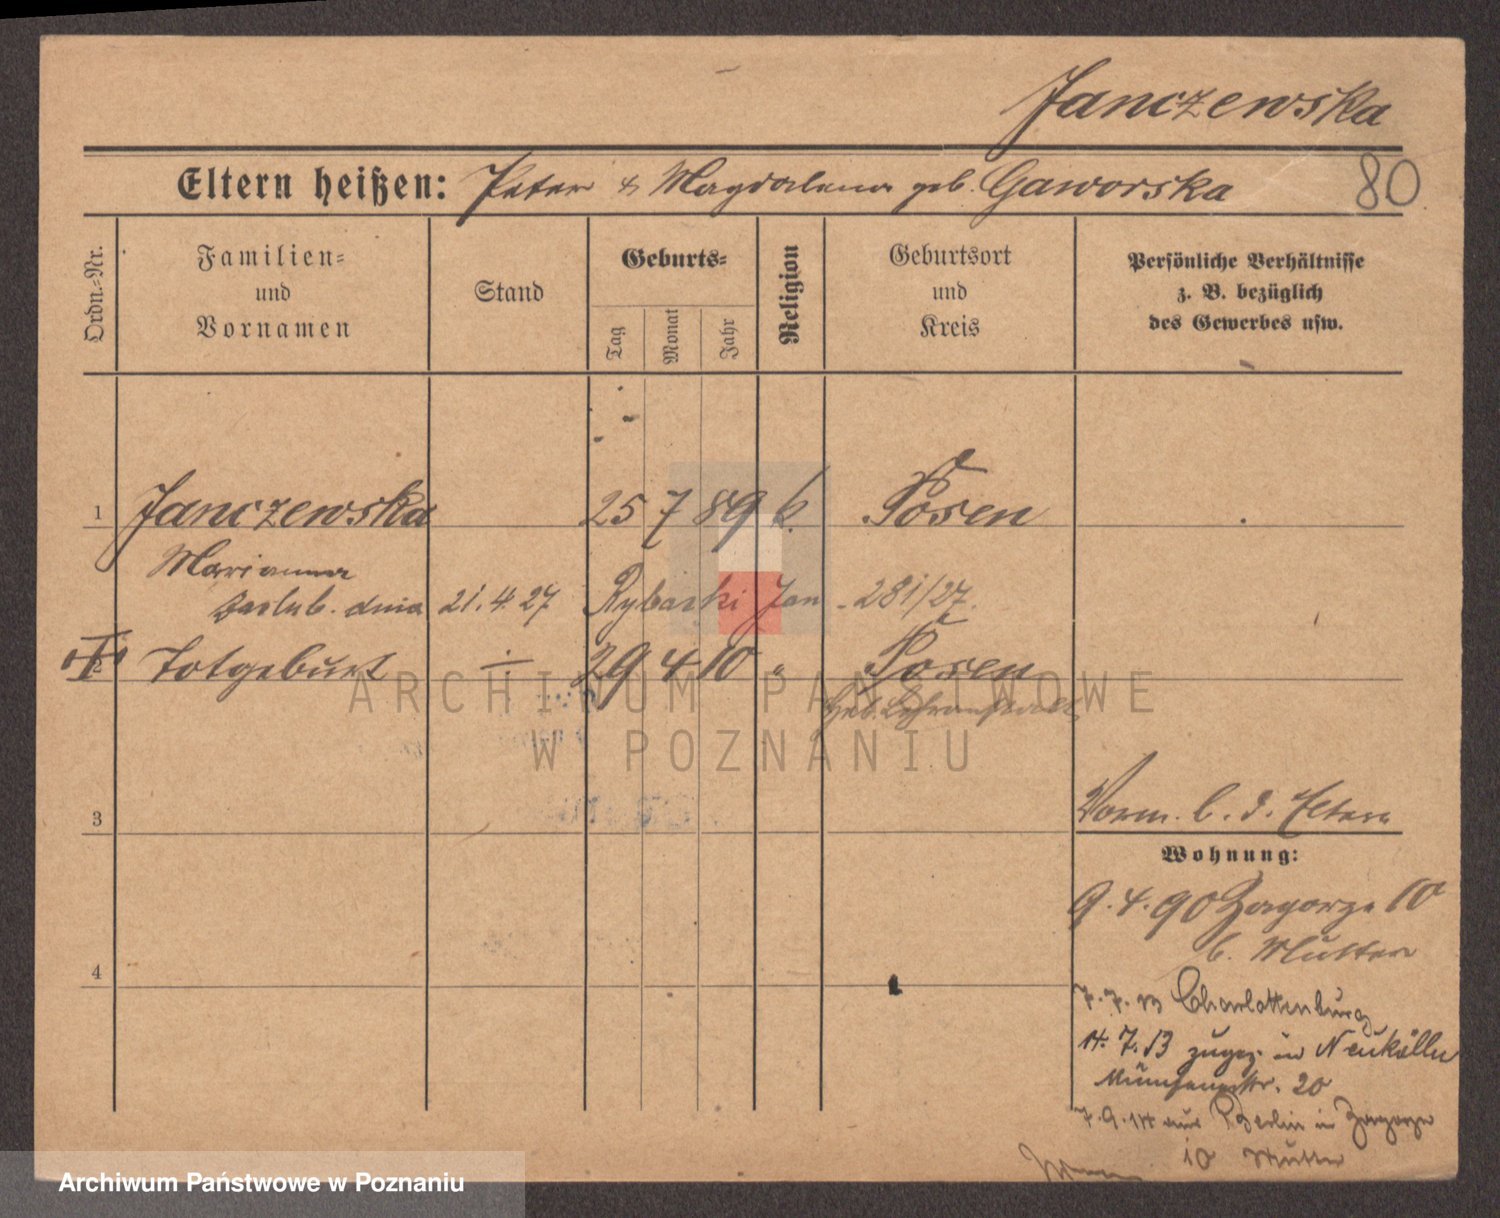 Janczewska
Eltern heißen: Peter & Magdalena geb. Gaworska 80
Ordn.-Nr.
Familien=
und
Vornamen
Stand
Geburts=
Tag
Monat
Jahr
Religion
Geburtsort
und
Kreis
Persönliche Verhältnisse
z. B. bezüglich
des Gewerbes usw.
1 Janczewska 25 7 89 k. Posen
Marianna
zaslub. dnia 21. 4. 27 Rybacki Jan - 281/27.
2 Totgeburt ÷ 29 4 10 " Posen
ARCHIWUM PAŃSTWOWE
W POZNANIU
3
Vorm. b. d. Eltern
Wohnung:
9. 4. 90 Zagorze 10
b. Mutter
4
7. 7. 13 Charlottenburg
14. 7. 13 zugez. in Neukölln
20
7. 9. 14 aus Berlin in Zagorze
10 Mutter
Archiwum Państwowe w Poznaniu